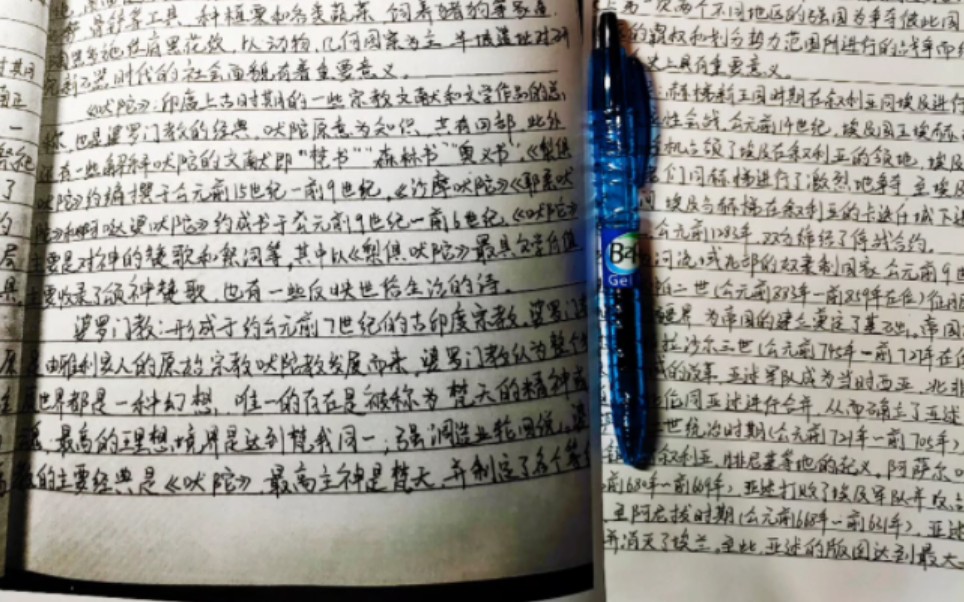 骨针等工具、种植粟和各类蔬菜、饲养猪狗等家畜
以动物、几何图案为主
新石器时代的社会面貌有着重要意义。
《吠陀》:印度上古时期的一些宗教文献和文学作品的总
称,也是婆罗门教的经典,吠陀原意为知识,共有四部,此外
还有一些解释吠陀的文献即“梵书”“森林书”“奥义书”,《梨俱
吠陀》约编撰于公元前15世纪—前9世纪,《沙摩吠陀》《耶柔吠
陀》和《阿达婆吠陀》约成书于公元前9世纪—前6世纪,《吠陀》
主要是对神的赞歌和祭词等,其中以《梨俱吠陀》最具文学价值
主要收录了颂神赞歌,也有一些反映世俗生活的诗。
婆罗门教:形成于约公元前7世纪的古印度宗教,婆罗门
由雅利安人的原始宗教吠陀教发展而来,婆罗门教认为整个
世界都是一种幻想,唯一的存在是被称为梵天的精神或
最高的理想境界是达到梵我同一;强调造业轮回说。婆
教的主要经典是《吠陀》,最高主神是梵天,并制定了各个等
B4
Gel
两个不同地区的强国为争夺彼此国
的霸权和划分势力范围所进行的战争而
史上具有重要意义。
赫梯新王国时期在叙利亚同埃及进行
性会战,公元前14世纪,埃及国王埃
机占领了埃及在叙利亚的领地,埃及
们同赫梯进行了激烈地争夺,至埃及
埃及与赫梯在叙利亚的卡迭什城下进
公元前1283年,双方缔结了停战合约。
河流域北部的奴隶制国家,公元前9世
二世(公元前883年—前859年在位)征
为帝国的建立奠定了基础。帝国
拉沙尔三世(公元前745年—前727年在位
的改革,亚述军队成为当时西亚、北非
伦同亚述进行合并,从而确立了亚述
世统治时期(公元前721年—前705年),
叙利亚、腓尼基等地的起义。阿萨尔
前680年—前669年),亚述打败了埃及军队并攻占
尼拔时期(公元前668年—前631年),亚述
并消灭了埃兰。至此,亚述的版图达到最大